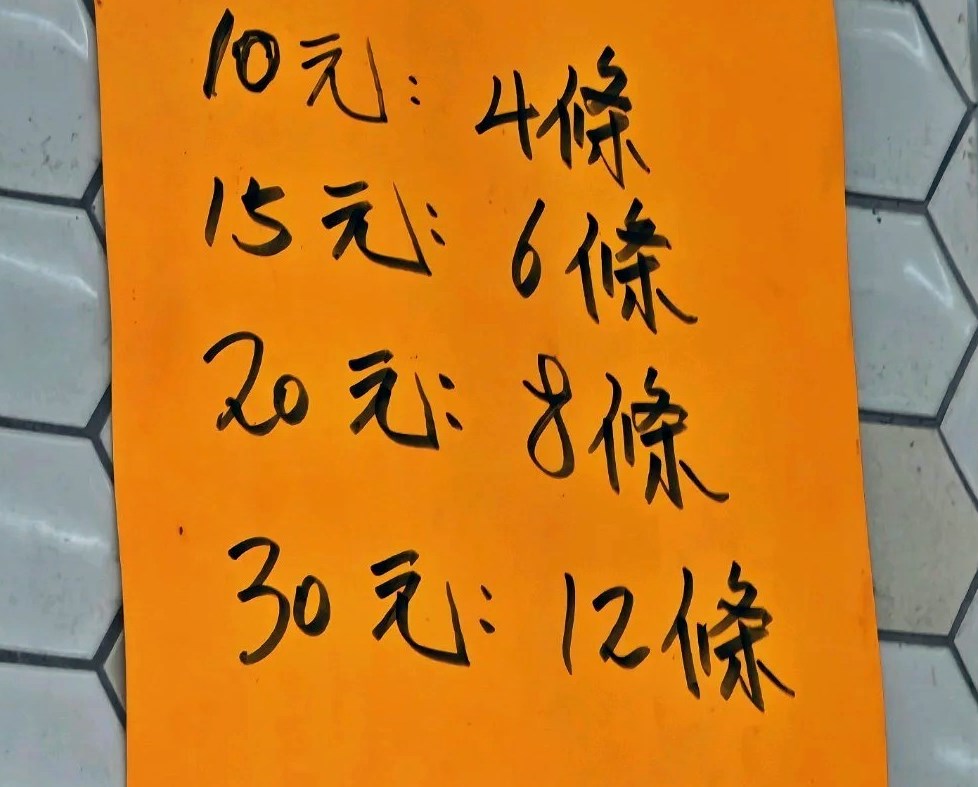 10元：4條
15元：6條
20元：8條
30元：12條